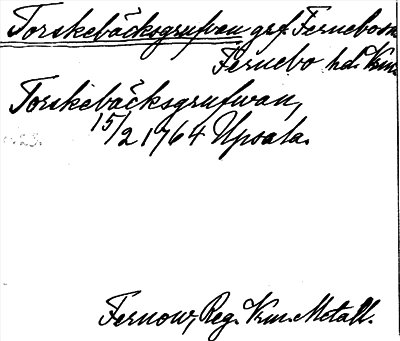 Torskebäcksgrufvan grf. Fernebosn
Fernebo hd. Vrm.
Torskebäcksgrufwan,
15/2 1764 Upsala.
Fernow, Reg. Vrm. Metall.